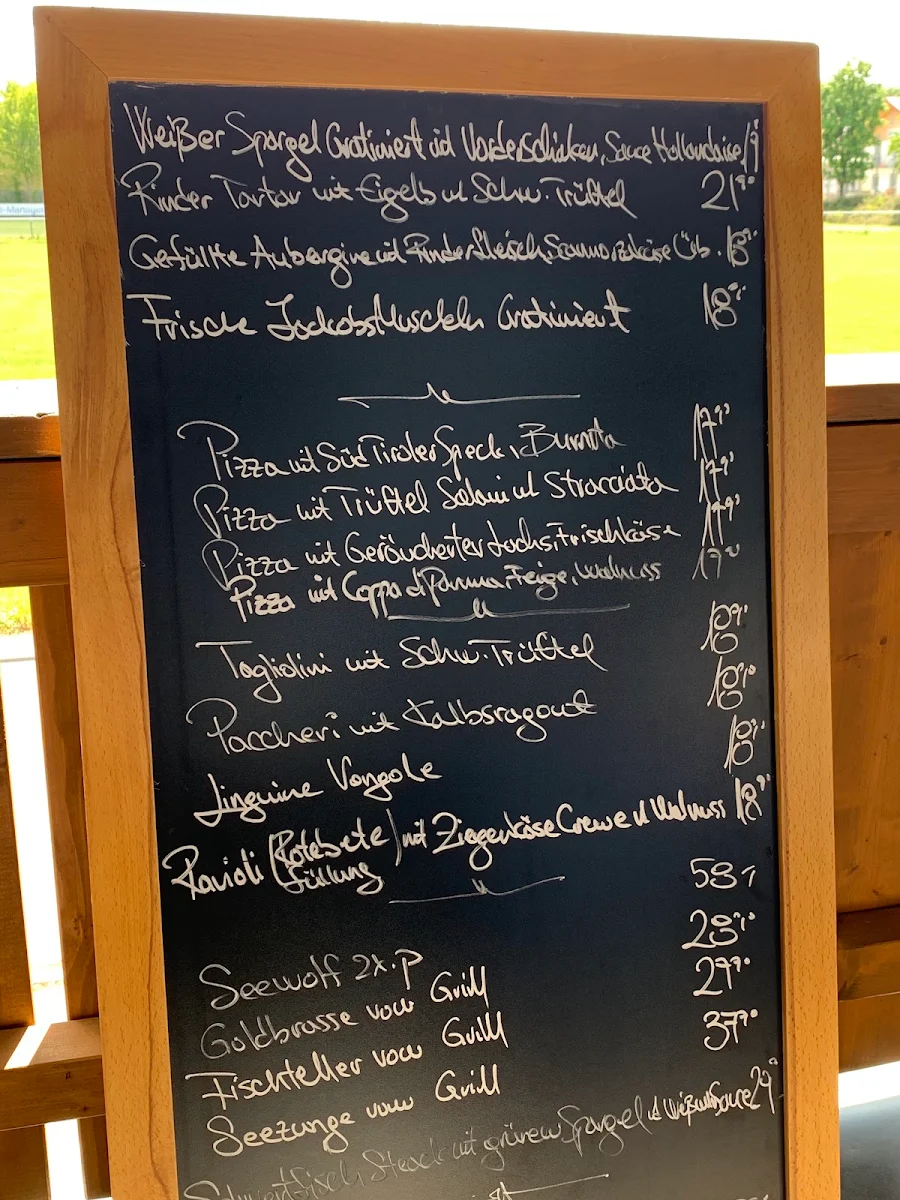 Weißer Spargel Gratiniert mit Vorderschinken, Sauce Hollandaise 19
Rinder Tartar mit Eigelb u Schw. Trüffel 21,90
Gefüllte Aubergine mit Rinderfleisch, Scamorzakäse Üb. 18,90
Frische Jackobsmuscheln Gratiniert 18,90
Pizza mit Süd Tiroler Speck, Burrata 17,90
Pizza mit Trüffel Salami u Stracciata 17,90
Pizza mit Geräucherter Lachs, Frischkäse 17,90
Pizza mit Coppa di Parma, Feige, Walnuss 17,90
Tagliolini mit Schw. Trüffel 18,90
Paccheri mit Kalbsragout 18,90
Linguine Vongole 18,90
Ravioli (Rotebete Füllung) mit Ziegenkäse Creme u Walnuss 18,90
Seewolf 2x.P 58,
Goldbrasse vom Grill 28,90
Fischteller vom Grill 27,90
Seezunge vom Grill 37,90
Schwertfisch Steack mit grünem Spargel 29